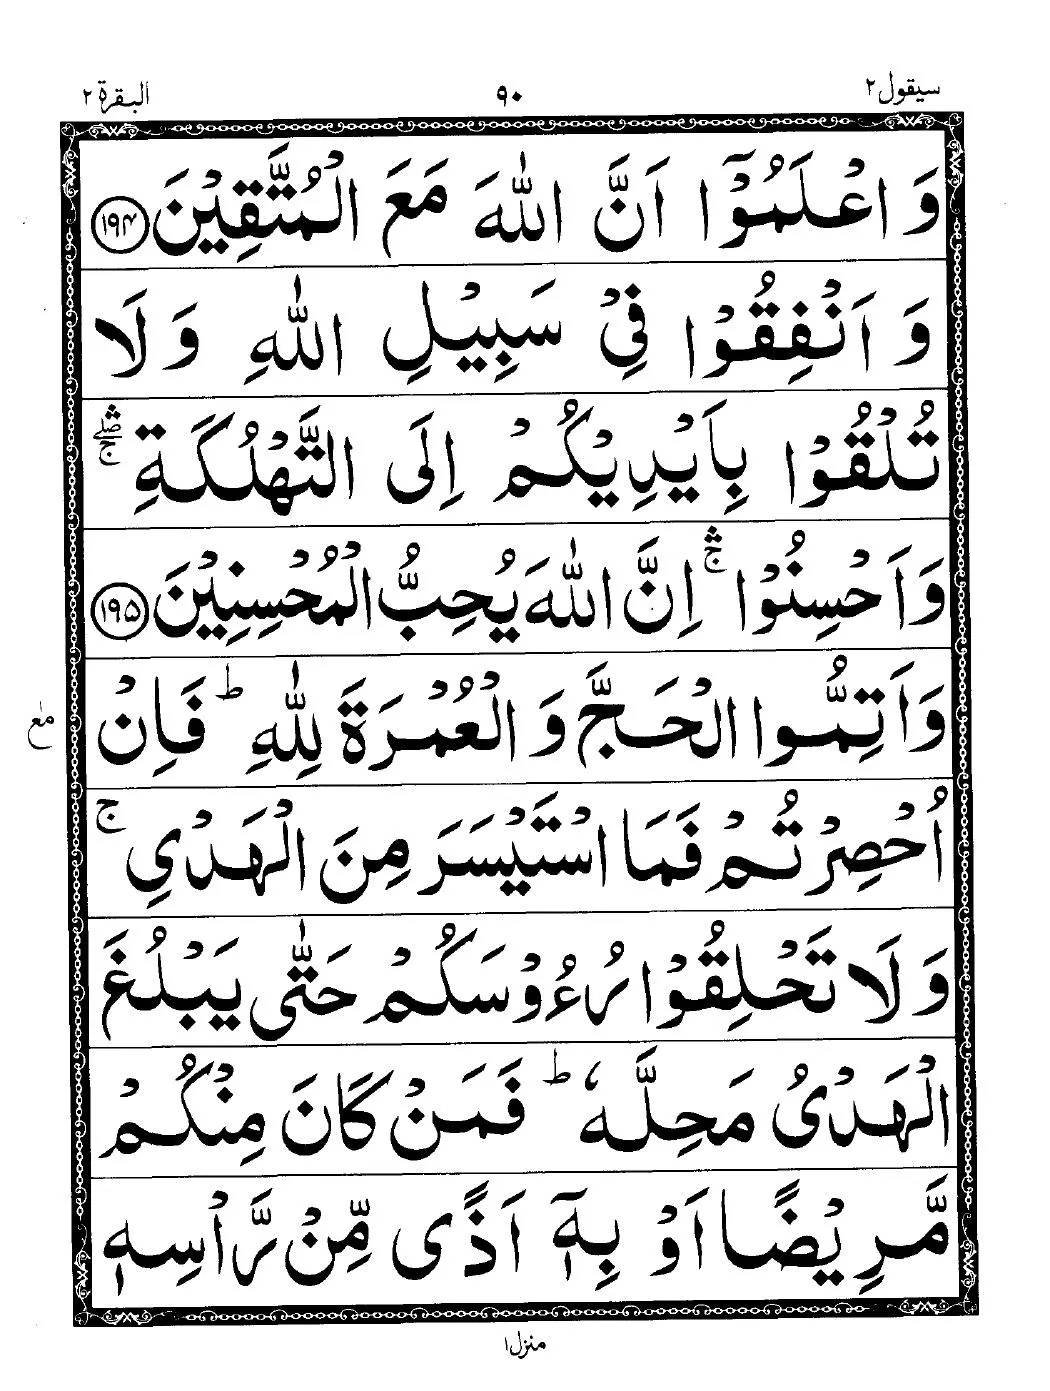 سيقول ٢
٩٠
البقرة ٢
وَ اعْلَمُوْۤا اَنَّ اللّٰهَ مَعَ الْمُتَّقِيْنَ ﴿۱۹۴﴾
وَ اَنْفِقُوْا فِيْ سَبِيْلِ اللّٰهِ وَ لَا
تُلْقُوْا بِاَيْدِيْكُمْ اِلَى التَّهْلُكَةِ ۛۖۚ
وَ اَحْسِنُوْا ۛۚ اِنَّ اللّٰهَ يُحِبُّ الْمُحْسِنِيْنَ ﴿۱۹۵﴾
وَ اَتِمُّوا الْحَجَّ وَ الْعُمْرَةَ لِلّٰهِ ؕ فَاِنْ
مع
اُحْصِرْتُمْ فَمَا اسْتَيْسَرَ مِنَ الْهَدْيِ ۚ
وَ لَا تَحْلِقُوْا رُءُوْسَكُمْ حَتّٰى يَبْلُغَ
الْهَدْيُ مَحِلَّهٗ ؕ فَمَنْ كَانَ مِنْكُمْ
مَّرِيْضًا اَوْ بِهٖۤ اَذًى مِّنْ رَّاْسِهٖ
منزل ١